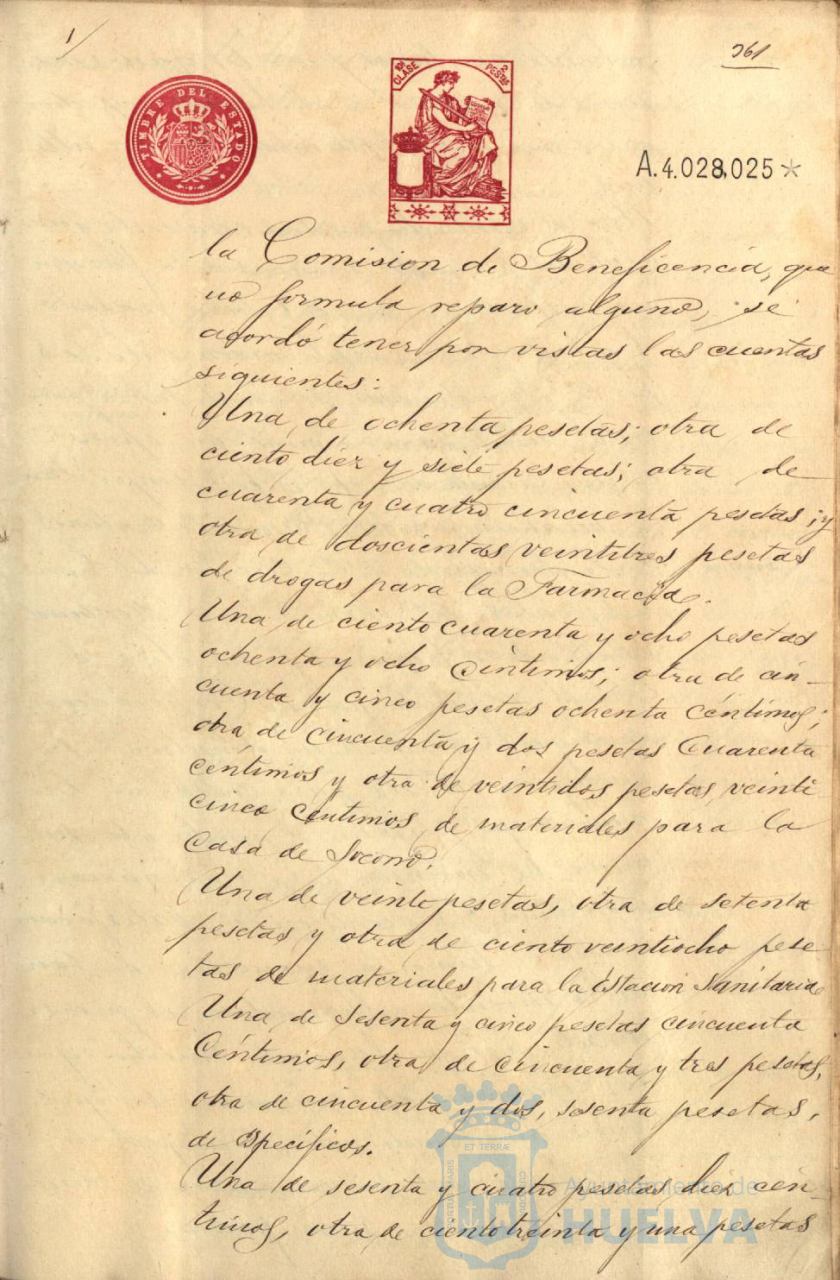 1/
361
TIMBRE DEL ESTADO
10ª CLASE
2 PESETAS
A.4.028,025*
la Comision de Beneficencia, que
no formula reparo alguno, se
acordó tener por vistas las cuentas
siguientes:
Una de ochenta pesetas; otra de
ciento diez y siete pesetas; otra de
cuarenta y cuatro cincuenta pesetas; y
otra de doscientas veintitres pesetas
de drogas para la Farmacia.
Una de ciento cuarenta y ocho pesetas
ochenta y ocho céntimos; otra de cin-
cuenta y cinco pesetas ochenta céntimos;
otra de cincuenta y dos pesetas cuarenta
céntimos y otra de veintidos pesetas, veinti
cinco céntimos de materiales para la
Casa de Socorro.
Una de veinte pesetas, otra de setenta
pesetas y otra de ciento veintiocho pese
tas de materiales para la Estacion Sanitaria
Una de sesenta y cinco pesetas cincuenta
Céntimos, otra de cincuenta y tres pesetas,
otra de cincuenta y dos, sesenta pesetas,
de específicos.
Una de sesenta y cuatro pesetas diez cén-
timos, otra de ciento treinta y una pesetas
ET TERRÆ
Ayuntamiento de
HUELVA